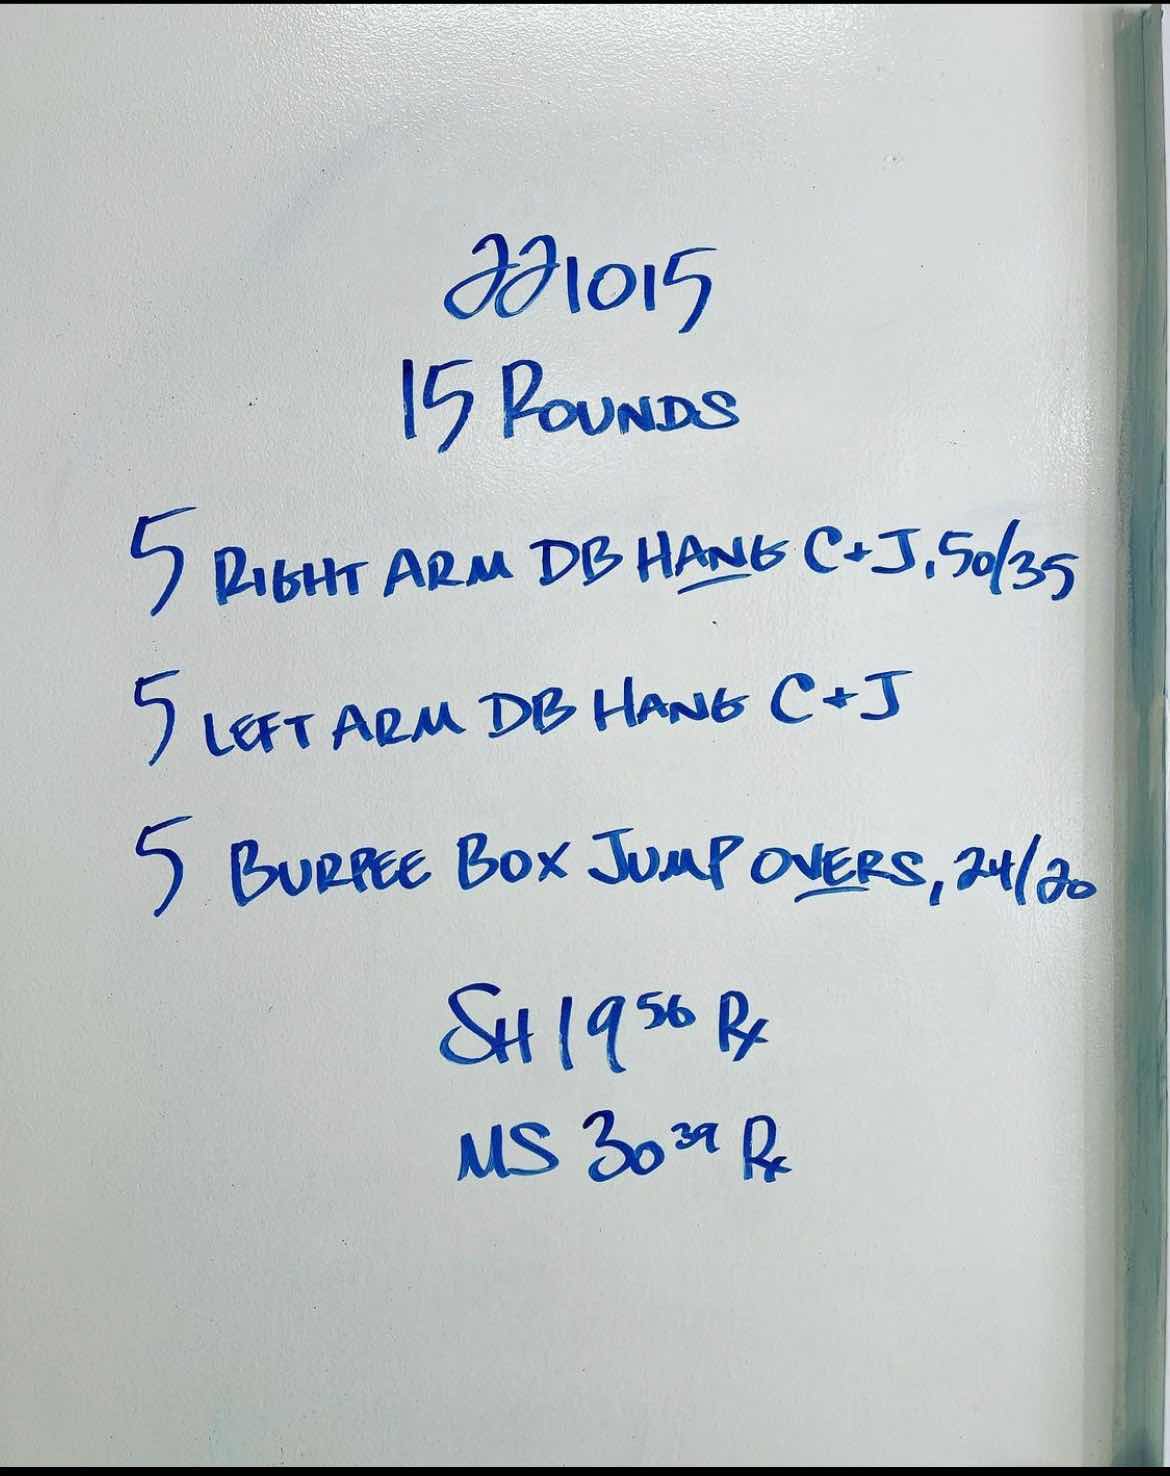 221015
15 ROUNDS
5 RIGHT ARM DB HANG C+J, 50/35
5 LEFT ARM DB HANG C+J
5 BURPEE BOX JUMP OVERS, 24/20
SH 19 56 Rx
MS 30 39 Rx